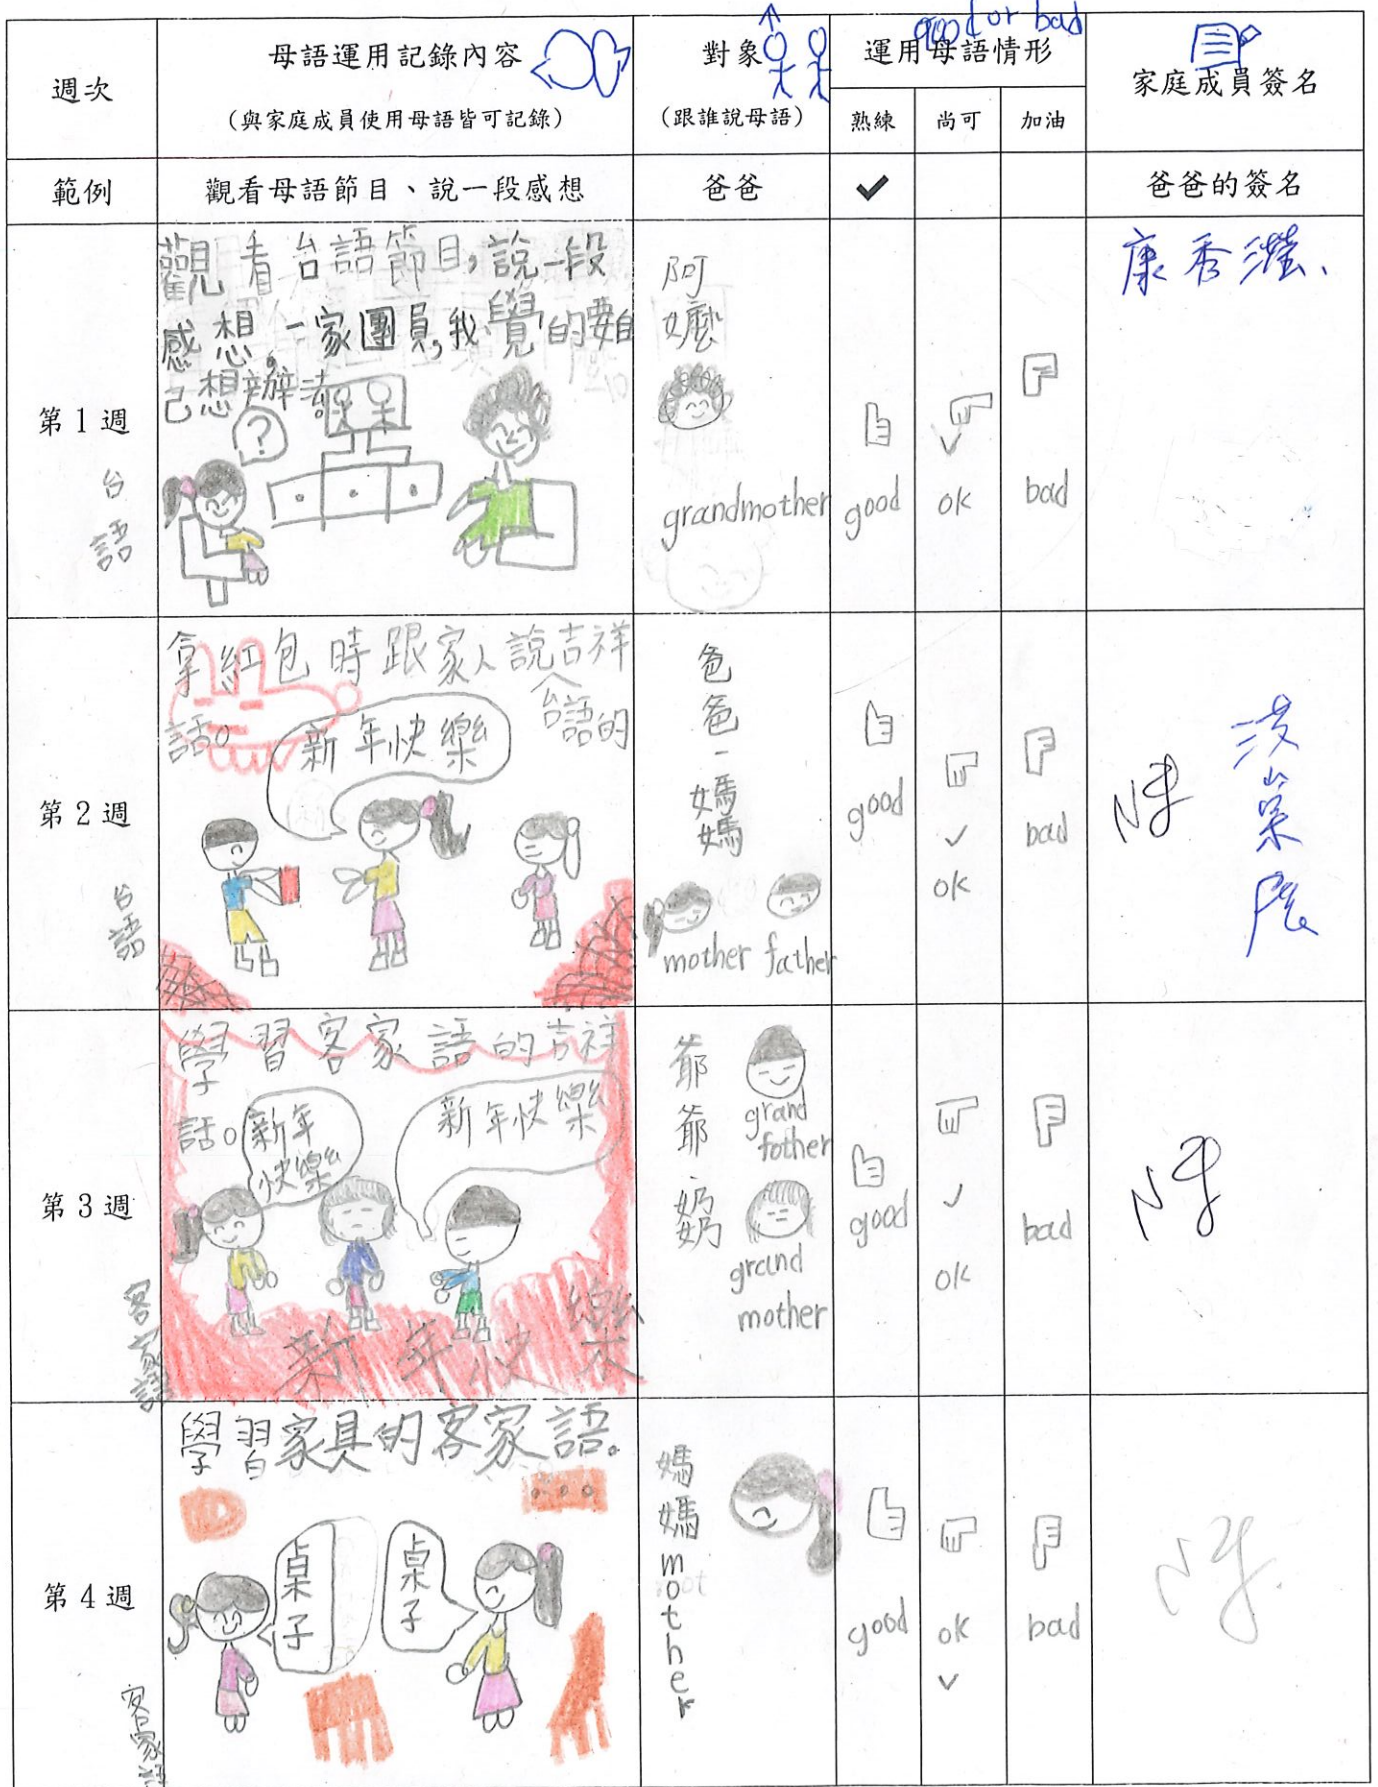 good or bad
週次
母語運用記錄內容
(與家庭成員使用母語皆可記錄)
對象
(跟誰說母語)
運用母語情形
熟練
尚可
加油
家庭成員簽名
範例
觀看母語節目、說一段感想
爸爸
✓
爸爸的簽名
第1週
台語
觀看台語節目,說一段
感想。一家團員,我覺的要自
己想辦法。
?
阿嬤
grandmother
good
✓
ok
bad
康秀瀅、
第2週
台語
拿紅包時跟家人說吉祥
台語的
話。
新年快樂
爸爸、媽媽
mother father
good
✓
ok
bad
第3週
客家語
學習客家語的吉祥
話。
新年
快樂
新年快樂
新年快樂
爺爺、奶奶
grand
fother
grand
mother
good
✓
ok
bad
第4週
客家語
學習家具的客家語。
桌子
桌子
媽媽mother
good
ok
✓
bad